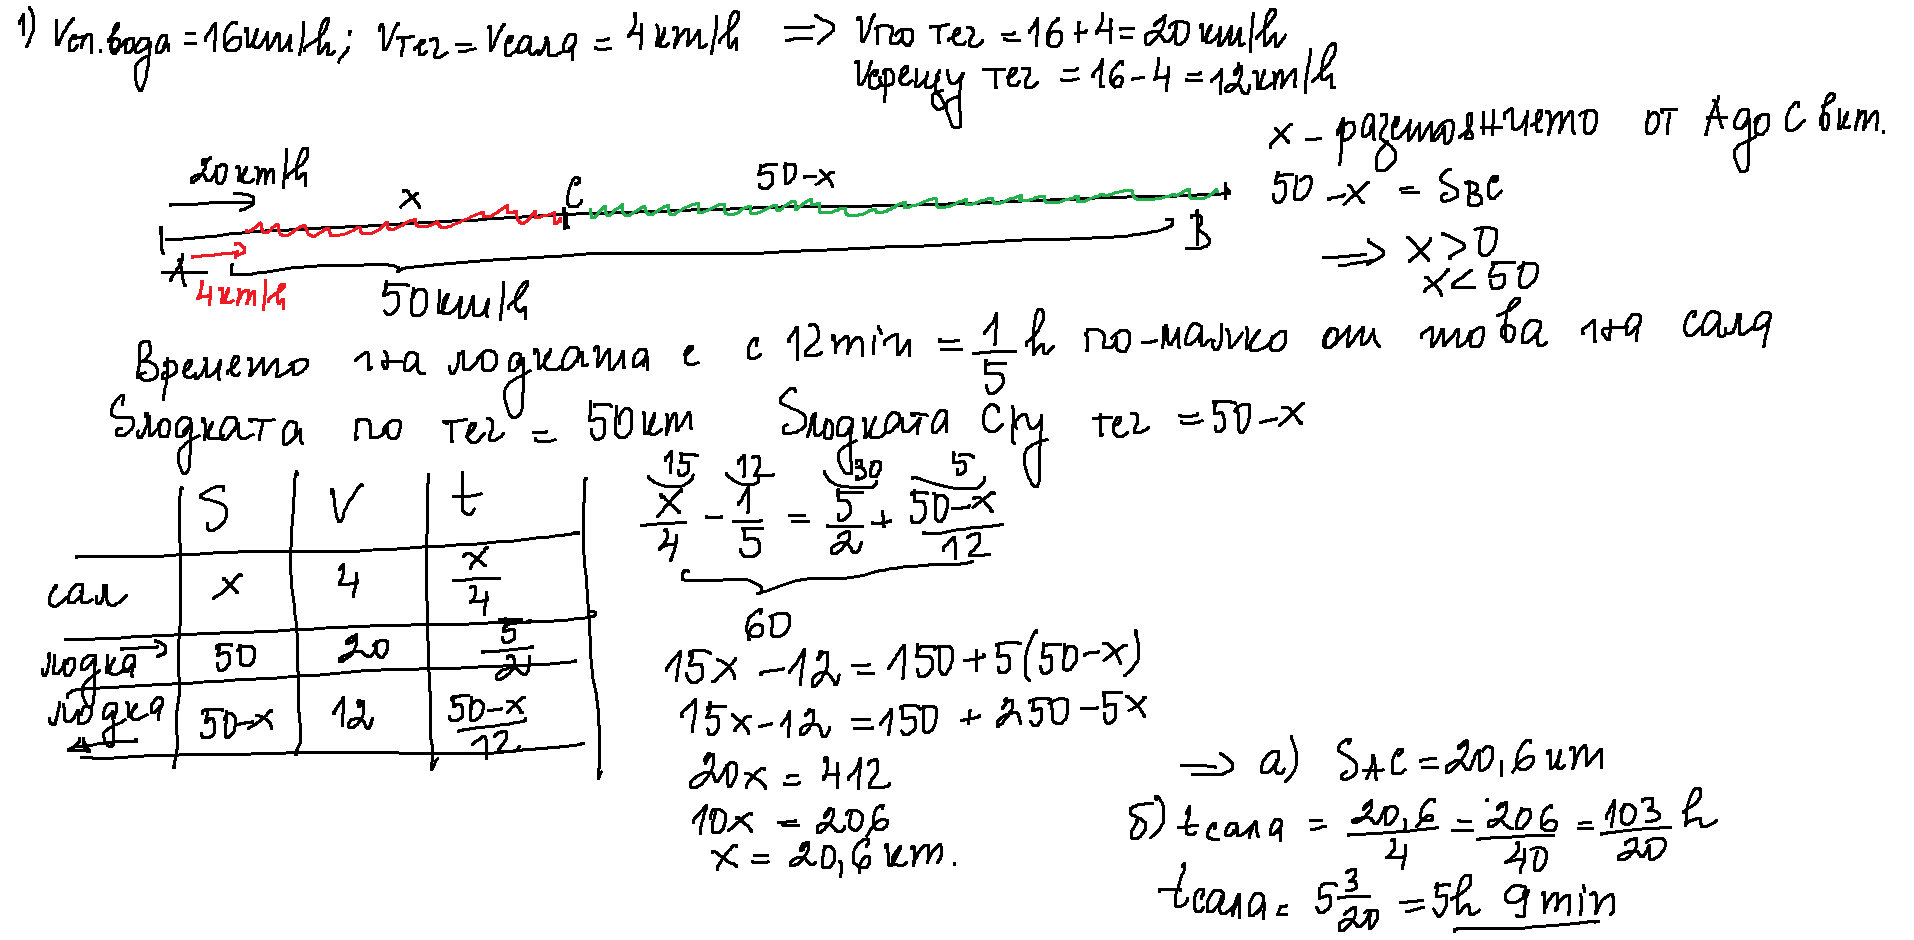 1) Vсп.вода = 16 km/h; Vтеч = Vсала = 4 km/h ⟹ Vпо теч = 16 + 4 = 20 km/h
Vсрещу теч = 16 - 4 = 12 km/h
x - разстоянието от A до C в km.
20 km/h x C 50-x
50 - x = S_BC
A B
⟹ x > 0
x < 50
4 km/h 50 km/h
Времето на лодката е с 12 min = 1/5 h по-малко от това на сала
Sлодката по теч = 50 km Sлодката с/у теч = 50 - x
S V t
сал x 4 x/4
лодка → 50 20 5/2
лодка ← 50-x 12 50-x/12
15 12 30 5
x/4 - 1/5 = 5/2 + 50-x/12
60
15x - 12 = 150 + 5(50-x)
15x - 12 = 150 + 250 - 5x
20x = 412
10x = 206
x = 20,6 km.
⟹ а) S_AC = 20,6 km
б) tсала = 20,6/4 = 206/40 = 103/20 h
tсала = 5 3/20 = 5h 9 min